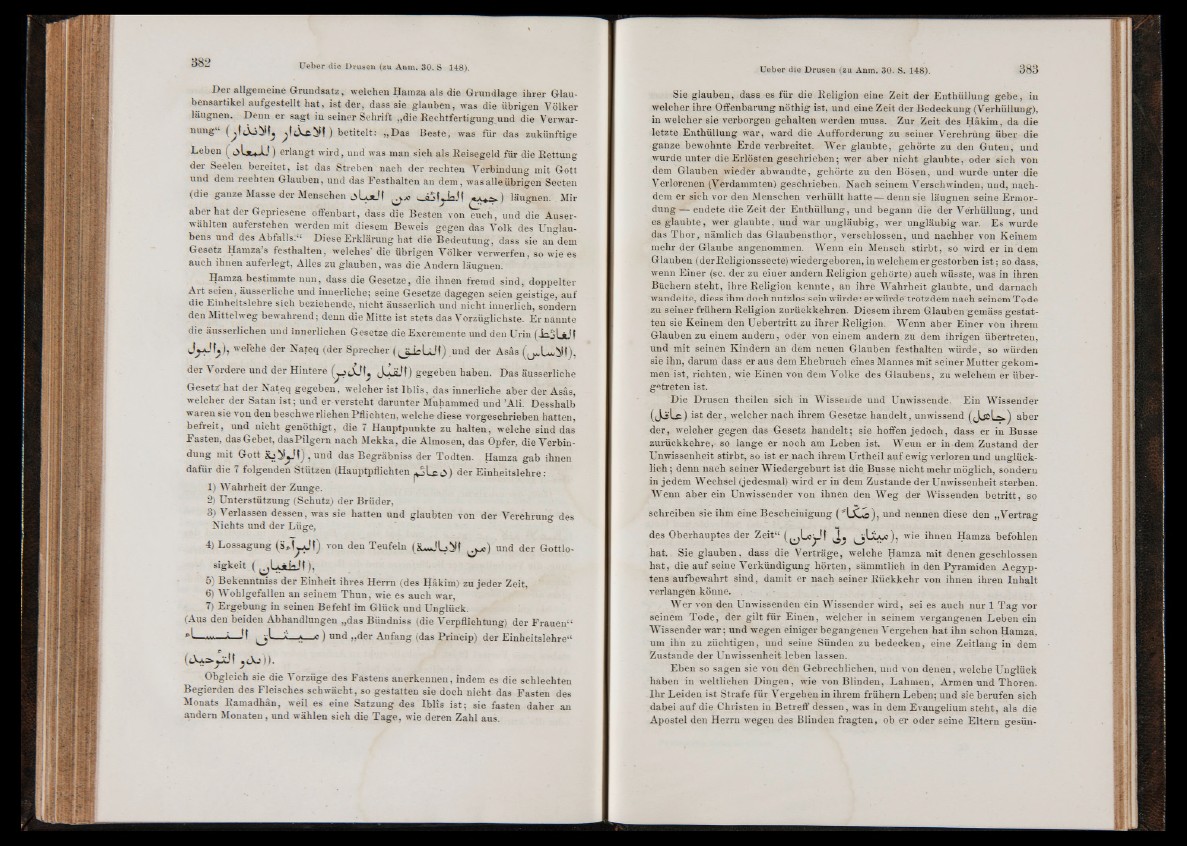 382
Ueber die Drusen (zu Anm. 30. S. 148).
Der allgemeine Grundsatz, welchen Hamza als die Grundlage ihrer Glau-
bensartikel aufgestellt hat, ist der, dass sie glauben, was die übrigen Völker
läugnen. Denn er sagt in seiner Schrift „die Rechtfertigung und die Verwar-
nung“ (الاعذار والانذار) betitelt: „Das Beste, was für das zukünftige
Leben (المعاد) erlangt wird, und was man sich als Reisegeld für die Rettung
der Seelen bereitet, ist das Streben nach der rechten Verbindung mit Gott
und dem rechten Glauben, und das Festhalten an dem, was alle übrigen Secten
(die ganze Masse der Menschen جميع الطوائف من العباد) läugnen. Mir
aber hat der Gepriesene offenbart, dass die Besten von euch, und die Auser-
wählten auferstehen werden mit diesem Beweis gegen das Volk des Unglau-
bens und des Abfalls.“ Diese Erklärung hat die Bedeutung, dass sie an dem
Gesetz Hamza's festhalten, welches die übrigen Völker verwerfen, so wie es
auch ihnen auferlegt, Alles zu glauben, was die Andern läugnen.
Ḥamza bestimmte nun, dass die Gesetze, die ihnen fremd sind, doppelter
Art seien, äusserliche und innerliche; seine Gesetze dagegen seien geistige, auf
die Einheitslehre sich beziehende, nicht äusserlich und nicht innerlich, sondern
den Mittelweg bewahrend; denn die Mitte ist stets das Vorzüglichste. Er nannte
die äusserlichen und innerlichen Gesetze die Excremente und den Urin (الغائط
والبول), welche der Naṭeq (der Sprecher (الناطق) und der Asâs (الاساس),
der Vordere und der Hintere (القبل والدبر) gegeben haben. Das äusserliche
Gesetz hat der Naṭeq gegeben, welcher ist Iblis, das innerliche aber der Asâs,
welcher der Satan ist; und er versteht darunter Muḥammed und 'Ali. Desshalb
waren sie von den beschwerlichen Pflichten, welche diese vorgeschrieben hatten,
befreit, und nicht genöthigt, die 7 Hauptpunkte zu halten, welche sind das
Fasten, das Gebet, das Pilgern nach Mekka, die Almosen, das Opfer, die Verbin-
dung mit Gott (الولاية), und das Begräbniss der Todten. Ḥamza gab ihnen
dafür die 7 folgenden Stützen (Hauptpflichten دعائم) der Einheitslehre:
1) Wahrheit der Zunge.
2) Unterstützung (Schutz) der Brüder,
3) Verlassen dessen, was sie hatten und glaubten von der Verehrung des
Nichts und der Lüge,
4) Lossagung (البراءة) von den Teufeln (من الابالسة) und der Gottlo-
sigkeit (الطغيان),
5) Bekenntniss der Einheit ihres Herrn (des Ḥâkim) zu jeder Zeit,
6) Wohlgefallen an seinem Thun, wie es auch war,
7) Ergebung in seinen Befehl im Glück und Unglück.
(Aus den beiden Abhandlungen „das Bündniss (die Verpflichtung) der Frauen“
ميثاق النساء) und „der Anfang (das Princip) der Einheitslehre“
(بدو التوحيد)).
Obgleich sie die Vorzüge des Fastens anerkennen, indem es die schlechten
Begierden des Fleisches schwächt, so gestatten sie doch nicht das Fasten des
Monats Ramadhân, weil es eine Satzung des Iblis ist; sie fasten daher an
andern Monaten, und wählen sich die Tage, wie deren Zahl aus.
Ueber die Drusen (zu Anm. 30. S. 148).
383
Sie glauben, dass es für die Religion eine Zeit der Enthüllung gebe, in
welcher ihre Offenbarung nöthig ist, und eine Zeit der Bedeckung (Verhüllung),
in welcher sie verborgen gehalten werden muss. Zur Zeit des Ḥâkim, da die
letzte Enthüllung war, ward die Aufforderung zu seiner Verehrung über die
ganze bewohnte Erde verbreitet. Wer glaubte, gehörte zu den Guten, und
wurde unter die Erlösten geschrieben; wer aber nicht glaubte, oder sich von
dem Glauben wieder abwandte, gehörte zu den Bösen, und wurde unter die
Verlorenen (Verdammten) geschrieben. Nach seinem Verschwinden, und, nach-
dem er sich vor den Menschen verhüllt hatte — denn sie läugnen seine Ermor-
dung — endete die Zeit der Enthüllung, und begann die der Verhüllung, und
es glaubte, wer glaubte, und war ungläubig, wer ungläubig war. Es wurde
das Thor, nämlich das Glaubensthor, verschlossen, und nachher von Keinem
mehr der Glaube angenommen. Wenn ein Mensch stirbt, so wird er in dem
Glauben (der Religionssecte) wiedergeboren, in welchem er gestorben ist; so dass,
wenn Einer (sc. der zu einer andern Religion gehörte) auch wüsste, was in ihren
Büchern steht, ihre Religion kennte, an ihre Wahrheit glaubte, und darnach
wandelte, diess ihm doch nutzlos sein würde: er würde trotzdem nach seinem Tode
zu seiner frühern Religion zurückkehren. Diesem ihrem Glauben gemäss gestat-
ten sie Keinem den Uebertritt zu ihrer Religion. Wenn aber Einer von ihrem
Glauben zu einem andern, oder von einem andern zu dem ihrigen überträten,
und mit seinen Kindern an dem neuen Glauben festhalten würde, so würden
sie ihn, darum dass er aus dem Ehebruch eines Mannes mit seiner Mutter gekom-
men ist, richten, wie Einen von dem Volke des Glaubens, zu welchem er über-
getreten ist.
Die Drusen theilen sich in Wissende und Unwissende. Ein Wissender
(عاقل) ist der, welcher nach ihrem Gesetze handelt, unwissend (جاهل) aber
der, welcher gegen das Gesetz handelt; sie hoffen jedoch, dass er in Busse
zurückkehre, so lange er noch am Leben ist. Wenn er in dem Zustand der
Unwissenheit stirbt, so ist er nach ihrem Urtheil auf ewig verloren und unglück-
lich; denn nach seiner Wiedergeburt ist die Busse nicht mehr möglich, sondern
in jedem Wechsel (jedesmal) wird er in dem Zustande der Unwissenheit sterben.
Wenn aber ein Unwissender von ihnen den Weg der Wissenden betritt, so
schreiben sie ihm eine Bescheinigung (صكا), und nennen diese den „Vertrag
des Oberhauptes der Zeit“ (ميثاق ولي الزمان), wie ihnen Ḥamza befohlen
hat. Sie glauben, dass die Verträge, welche Ḥamza mit denen geschlossen
hat, die auf seine Verkündigung hörten, sämmtlich in den Pyramiden Aegyp-
tens aufbewahrt sind, damit er nach seiner Rückkehr von ihnen ihren Inhalt
verlangen könne.
Wer von den Unwissenden ein Wissender wird, sei es auch nur 1 Tag vor
seinem Tode, der gilt für Einen, welcher in seinem vergangenen Leben ein
Wissender war; und wegen einiger begangenen Vergehen hat ihn schon Hamza,
um ihn zu züchtigen, und seine Sünden zu bedecken, eine Zeitlang in dem
Zustande der Unwissenheit leben lassen.
Eben so sagen sie von den Gebrechlichen, und von denen, welche Unglück
haben in weltlichen Dingen, wie von Blinden, Lahmen, Armen und Thoren.
Ihr Leiden ist Strafe für Vergehen in ihrem frühern Leben; und sie berufen sich
dabei auf die Christen in Betreff dessen, was in dem Evangelium steht, als die
Apostel den Herrn wegen des Blinden fragten, ob er oder seine Eltern gesün-